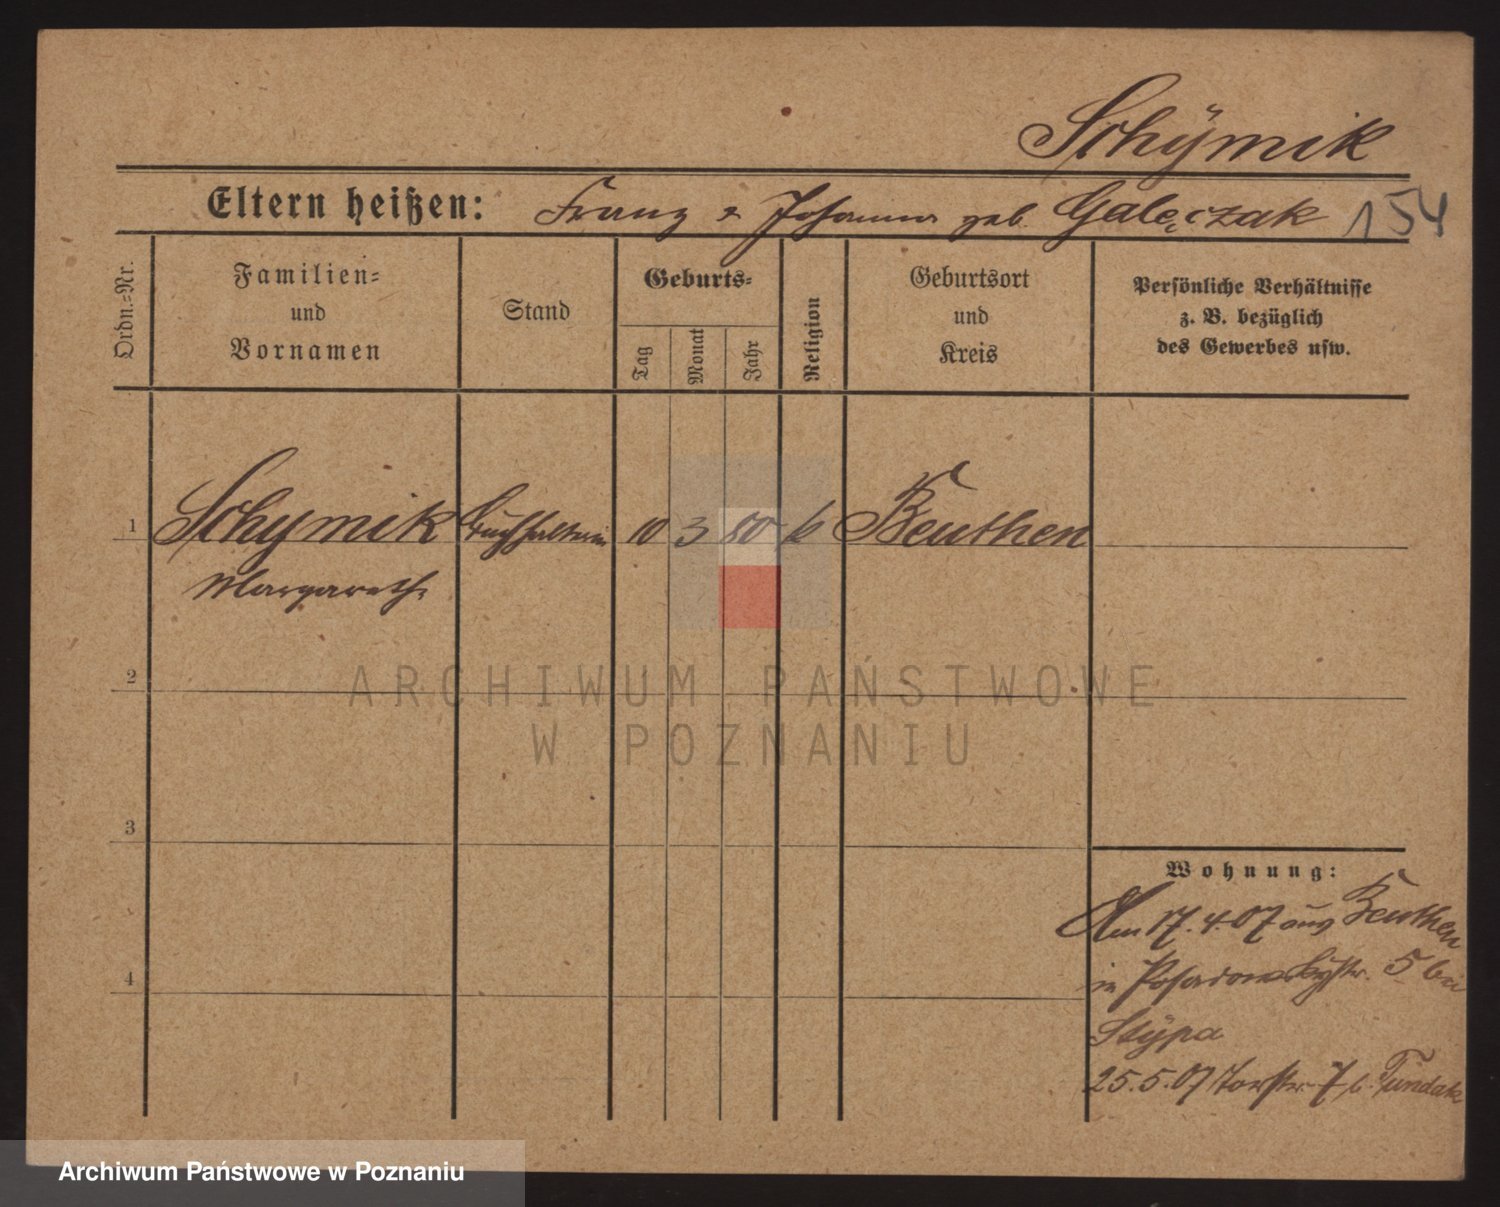 Schÿmik
Eltern heißen: Franz & Johanna geb. Galęczak 154
Ordn.=Nr.
Familien=
und
Vornamen
Stand
Geburts=
Tag
Monat
Jahr
Religion
Geburtsort
und
Kreis
Persönliche Verhältnisse
z. B. bezüglich
des Gewerbes usw.
1 Schymik Buchhalterin 10 3 80 k Beuthen
Margareth
2
ARCHIWUM PAŃSTWOWE
W POZNANIU
3
Wohnung:
Am 17.4.07 aus Beuthen
in Posadowskystr. 5 bei
Stÿpa
4
25.5.07 Torstr. 7 b. Tundak
Archiwum Państwowe w Poznaniu